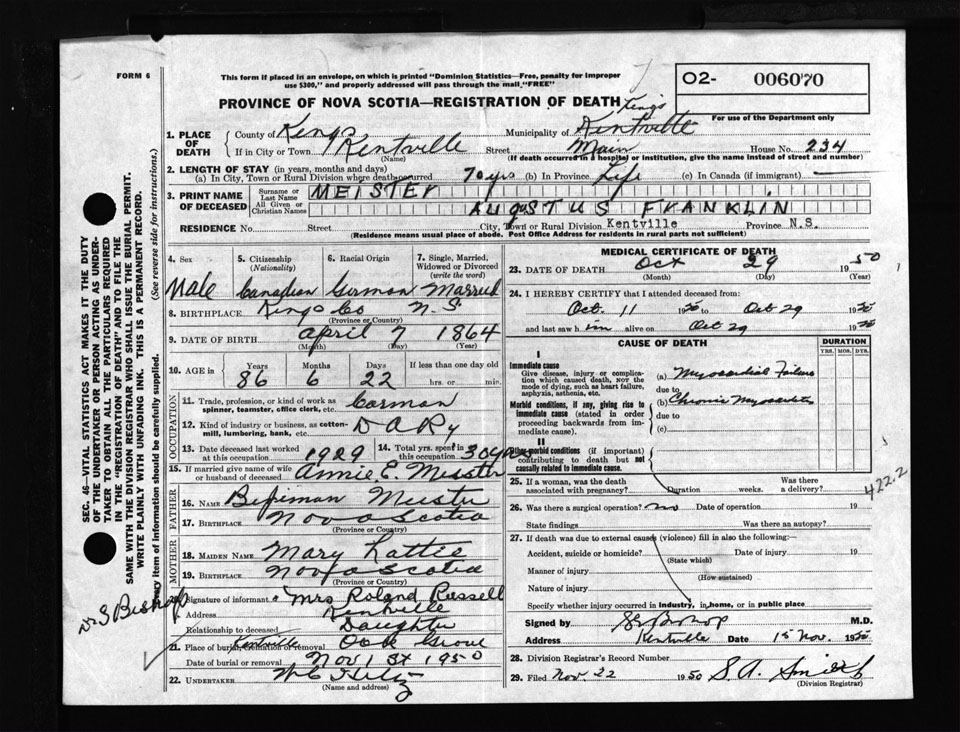 FORM 6
This form if placed in an envelope, on which is printed "Dominion Statistics—Free, penalty for improper
use $300," and properly addressed will pass through the mail "FREE"
O2- 006070
For use of the Department only
PROVINCE OF NOVA SCOTIA—REGISTRATION OF DEATH
Kings
1. PLACE OF DEATH
County of Kings Municipality of Kentville
If in City or Town Kentville Street Main House No. 234
(Name) (If death occurred in a hospital or institution, give the name instead of street and number)
2. LENGTH OF STAY (in years, months and days)
(a) In City, Town or Rural Division where death occurred 70 yrs (b) In Province Life (c) In Canada (if immigrant) —
3. PRINT NAME OF DECEASED
Surname or Last Name MEISTER
All Given or Christian Names AUGUSTUS FRANKLIN
RESIDENCE No. Street City, Town or Rural Division Kentville Province N.S.
(Residence means usual place of abode. Post Office Address for residents in rural parts not sufficient)
4. Sex 5. Citizenship (Nationality) 6. Racial Origin 7. Single, Married, Widowed or Divorced (write the word)
Male Canadian German Married
8. BIRTHPLACE Kings Co N.S
(Province or Country)
9. DATE OF BIRTH April 7 1864
(Month) (Day) (Year)
10. AGE in Years Months Days If less than one day old
86 6 22 hrs. or min.
OCCUPATION
11. Trade, profession, or kind of work as spinner, teamster, office clerk, etc. Carman
12. Kind of industry or business, as cotton-mill, lumbering, bank, etc. DARy
13. Date deceased last worked at this occupation 1929 14. Total yrs. spent in this occupation 30 yrs
15. If married give name of wife or husband of deceased Annie E. Meister
FATHER
16. NAME Meister
17. BIRTHPLACE Nova Scotia
(Province or Country)
MOTHER
18. MAIDEN NAME Mary
19. BIRTHPLACE Nova Scotia
(Province or Country)
Signature of informant Mrs Roland Russell
Address Kentville
Relationship to deceased Daughter
21. Place of burial, cremation or removal Kentville Oak Grove
Date of burial or removal Nov 1st 1950
22. UNDERTAKER
(Name and address)
MEDICAL CERTIFICATE OF DEATH
23. DATE OF DEATH Oct 29 1950
(Month) (Day) (Year)
24. I HEREBY CERTIFY that I attended deceased from:
Oct. 11 1950 to Oct 29 1950
and last saw him alive on Oct 29 1950
CAUSE OF DEATH DURATION
YRS. MOS. DYS.
I
Immediate cause
Give disease, injury or complication which caused death, not the mode of dying, such as heart failure, asphyxia, asthenia, etc.
(a) Myocardial Failure
due to
Morbid conditions, if any, giving rise to immediate cause (stated in order proceeding backwards from immediate cause).
(b) Chronic Myocarditis
due to
(c)
II
Other morbid conditions (if important) contributing to death but not causally related to immediate cause.
25. If a woman, was the death associated with pregnancy? Duration weeks. Was there a delivery?
422.2
26. Was there a surgical operation? no Date of operation 19
State findings Was there an autopsy?
27. If death was due to external causes (violence) fill in also the following:—
Accident, suicide or homicide? Date of injury 19
(State which)
Manner of injury
(How sustained)
Nature of injury
Specify whether injury occurred in industry, in home, or in public place
Signed by Bishop M.D.
Address Kentville Date 15 Nov. 1950
28. Division Registrar's Record Number
29. Filed Nov 22 1950 S A.
(Division Registrar)
SEC. 46—VITAL STATISTICS ACT MAKES IT THE DUTY
OF THE UNDERTAKER OR PERSON ACTING AS UNDER-
TAKER TO OBTAIN ALL THE PARTICULARS REQUIRED
IN THE "REGISTRATION OF DEATH" AND TO FILE THE
SAME WITH THE DIVISION REGISTRAR WHO SHALL ISSUE THE BURIAL PERMIT.
WRITE PLAINLY WITH UNFADING INK. THIS IS A PERMANENT RECORD.
Every item of information should be carefully supplied. (See reverse side for instructions.)
Dr S Bishop